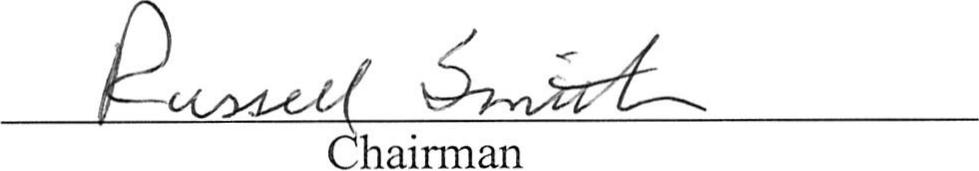 Russell Smith
Chairman